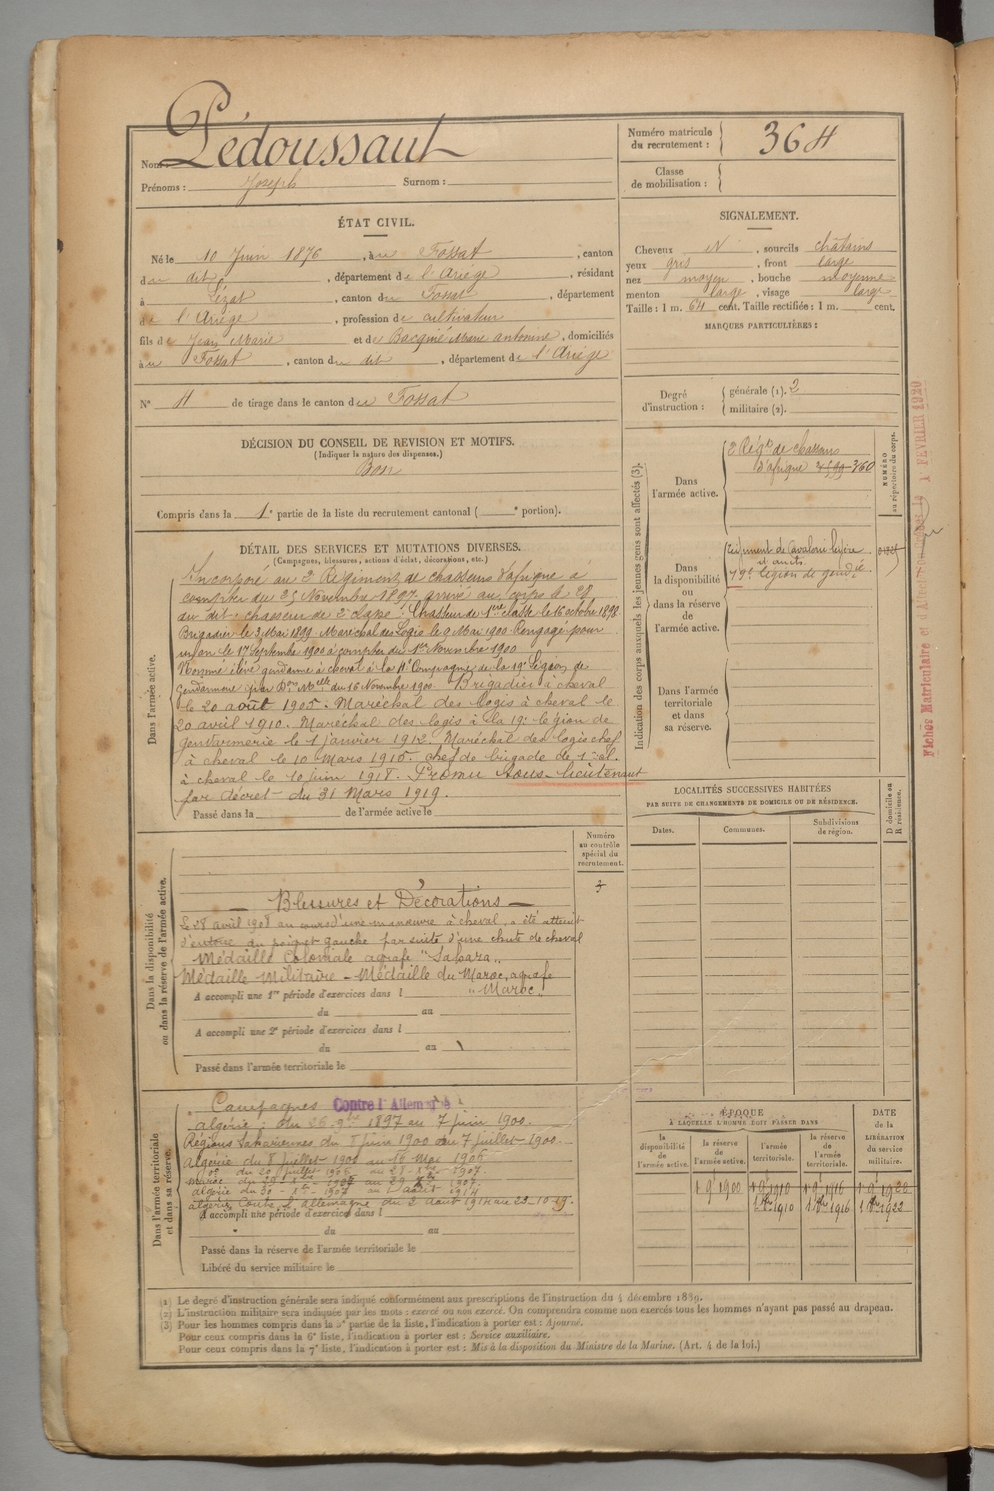 Nom : Pédoussaut
Prénoms : Joseph Surnom :
Numéro matricule du recrutement : 364
Classe de mobilisation :
ÉTAT CIVIL.
Né le 10 Juin 1876, à u Fossat, canton
du dit, département de l'Ariège, résidant
à Lézat, canton du Fossat, département
de l'Ariège, profession de cultivateur
fils de Jean Marie et de Bacqué Marie antoinine, domiciliés
à u Fossat, canton du dit, département de l'Ariège
N° 4 de tirage dans le canton du Fossat
SIGNALEMENT.
Cheveux N, sourcils châtains
yeux gris, front large
nez moyen, bouche moyenne
menton large, visage large
Taille : 1 m. 64 cent. Taille rectifiée : 1 m. cent.
MARQUES PARTICULIÈRES :
Degré d'instruction : générale (1). 2
militaire (2).
DÉCISION DU CONSEIL DE REVISION ET MOTIFS.
(Indiquer la nature des dispenses.)
Bon
Compris dans la 1e partie de la liste du recrutement cantonal ( e portion).
DÉTAIL DES SERVICES ET MUTATIONS DIVERSES.
(Campagnes, blessures, actions d'éclat, décorations, etc.)
Dans l'armée active.
Incorporé au 2e Régiment de chasseurs d'afrique à
compter du 25 Novembre 1897, arrivé au corps le 28
du dit. chasseur de 2e classe. Chasseur de 1ère classe le 16 octobre 1898
Brigadier le 3 Mai 1899 Maréchal des Logis le 9 Mai 1900 Rengagé pour
un an le 17 Septembre 1900 à compter du 1er Novembre 1900
Nommé élève gendarme à cheval à la 4e Compagnie de la 19e Légion de
Gendarmerie par Don Mlle du 16 Novembre 1900. Brigadier à cheval
le 20 août 1905. Maréchal des logis à cheval le
20 avril 1910. Maréchal des logis à la 19e légion de
gendarmerie le 1 janvier 1912. Maréchal des logis chef
à cheval le 10 Mars 1915. chef de brigade de 1e cl.
à cheval le 10 juin 1918. Promu Sous-lieutenant
par décret du 31 Mars 1919.
Passé dans la de l'armée active le
Indication des corps auxquels les jeunes gens sont affectés (3).
NUMÉRO au répertoire du corps.
Dans l'armée active.
2 Régt de chasseurs
d'afrique 360
Dans la disponibilité ou dans la réserve de l'armée active.
Régiment de Cavalerie légère
19e légion de gendie
Dans l'armée territoriale et dans sa réserve.
Fiches Matriculaire et d'Affectation créées le 1 FEVRIER 1920
LOCALITÉS SUCCESSIVES HABITÉES
PAR SUITE DE CHANGEMENTS DE DOMICILE OU DE RÉSIDENCE.
Dates. Communes. Subdivisions de région.
D domicile ou R résidence.
Numéro au contrôle spécial du recrutement.
Dans la disponibilité ou dans la réserve de l'armée active.
Blessures et Décorations
Le 28 avril 1908 au cours d'une manœuvre à cheval, a été atteint
d'entorse du poignet gauche par suite d'une chute de cheval
Médaille Coloniale agrafe "Sahara"
Médaille Militaire - Médaille du Maroc, agrafe
"Maroc"
A accompli une 1re période d'exercices dans l
du au
A accompli une 2e période d'exercices dans l
du au
Passé dans l'armée territoriale le
Dans l'armée territoriale et dans sa réserve.
Campagnes Contre l'Allemagne
algérie : du 26 9bre 1897 au 7 juin 1900.
Régions Sahariennes du 8 juin 1900 au 7 juillet 1900.
Algérie du 8 juillet 1900 au 16 Mai 1906
do du 20 juillet 1906 au 28 - 8bre - 1907.
Maroc du 29 8bre 1907 au 29 Xbre 1907.
algérie du 30 - Xbre - 1907 au 1 août 1914
algérie Contre l'allemagne du 2 août 1914 au 23-10-19.
A accompli une période d'exercices dans l
du au
Passé dans la réserve de l'armée territoriale le
Libéré du service militaire le
ÉPOQUE
À LAQUELLE L'HOMME DOIT PASSER DANS
la disponibilité de l'armée active.
la réserve de l'armée active.
l'armée territoriale.
la réserve de l'armée territoriale.
DATE de la LIBÉRATION du service militaire.
1 9e 1900 1 9e 1910 1 9e 1916 1 9e 1920
1 8bre 1910 1 8bre 1916 1 8bre 1922
(1) Le degré d'instruction générale sera indiqué conformément aux prescriptions de l'instruction du 4 décembre 1889.
(2) L'instruction militaire sera indiquée par les mots : exercé ou non exercé. On comprendra comme non exercés tous les hommes n'ayant pas passé au drapeau.
(3) Pour les hommes compris dans la 5e partie de la liste, l'indication à porter est : Ajourné.
Pour ceux compris dans la 6e liste, l'indication à porter est : Service auxiliaire.
Pour ceux compris dans la 7e liste, l'indication à porter est : Mis à la disposition du Ministre de la Marine. (Art. 4 de la loi.)